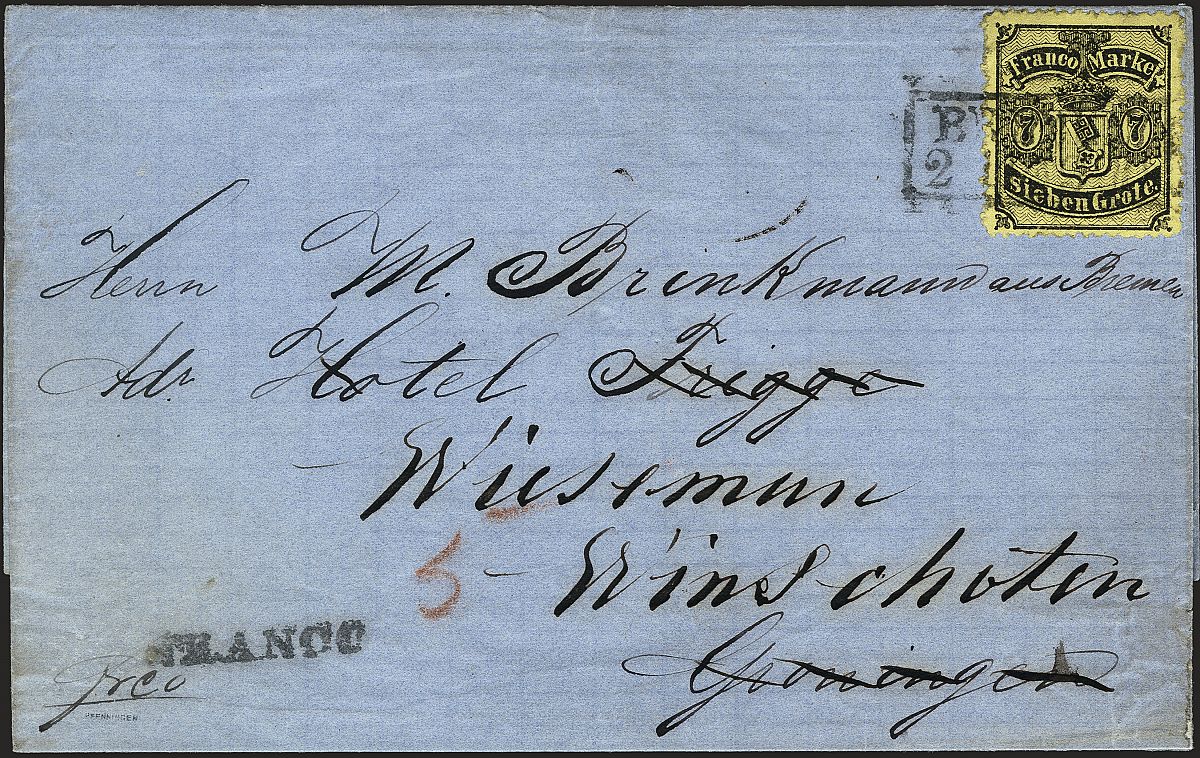 Franco Marke
7 7
sieben Grote.
2
Herrn M. Brinkmann aus Bremen
Adr. Hotel Frigge
Wiesemann
5
Winschoten
Groningen
FRANCO
frco
PFENNINGER